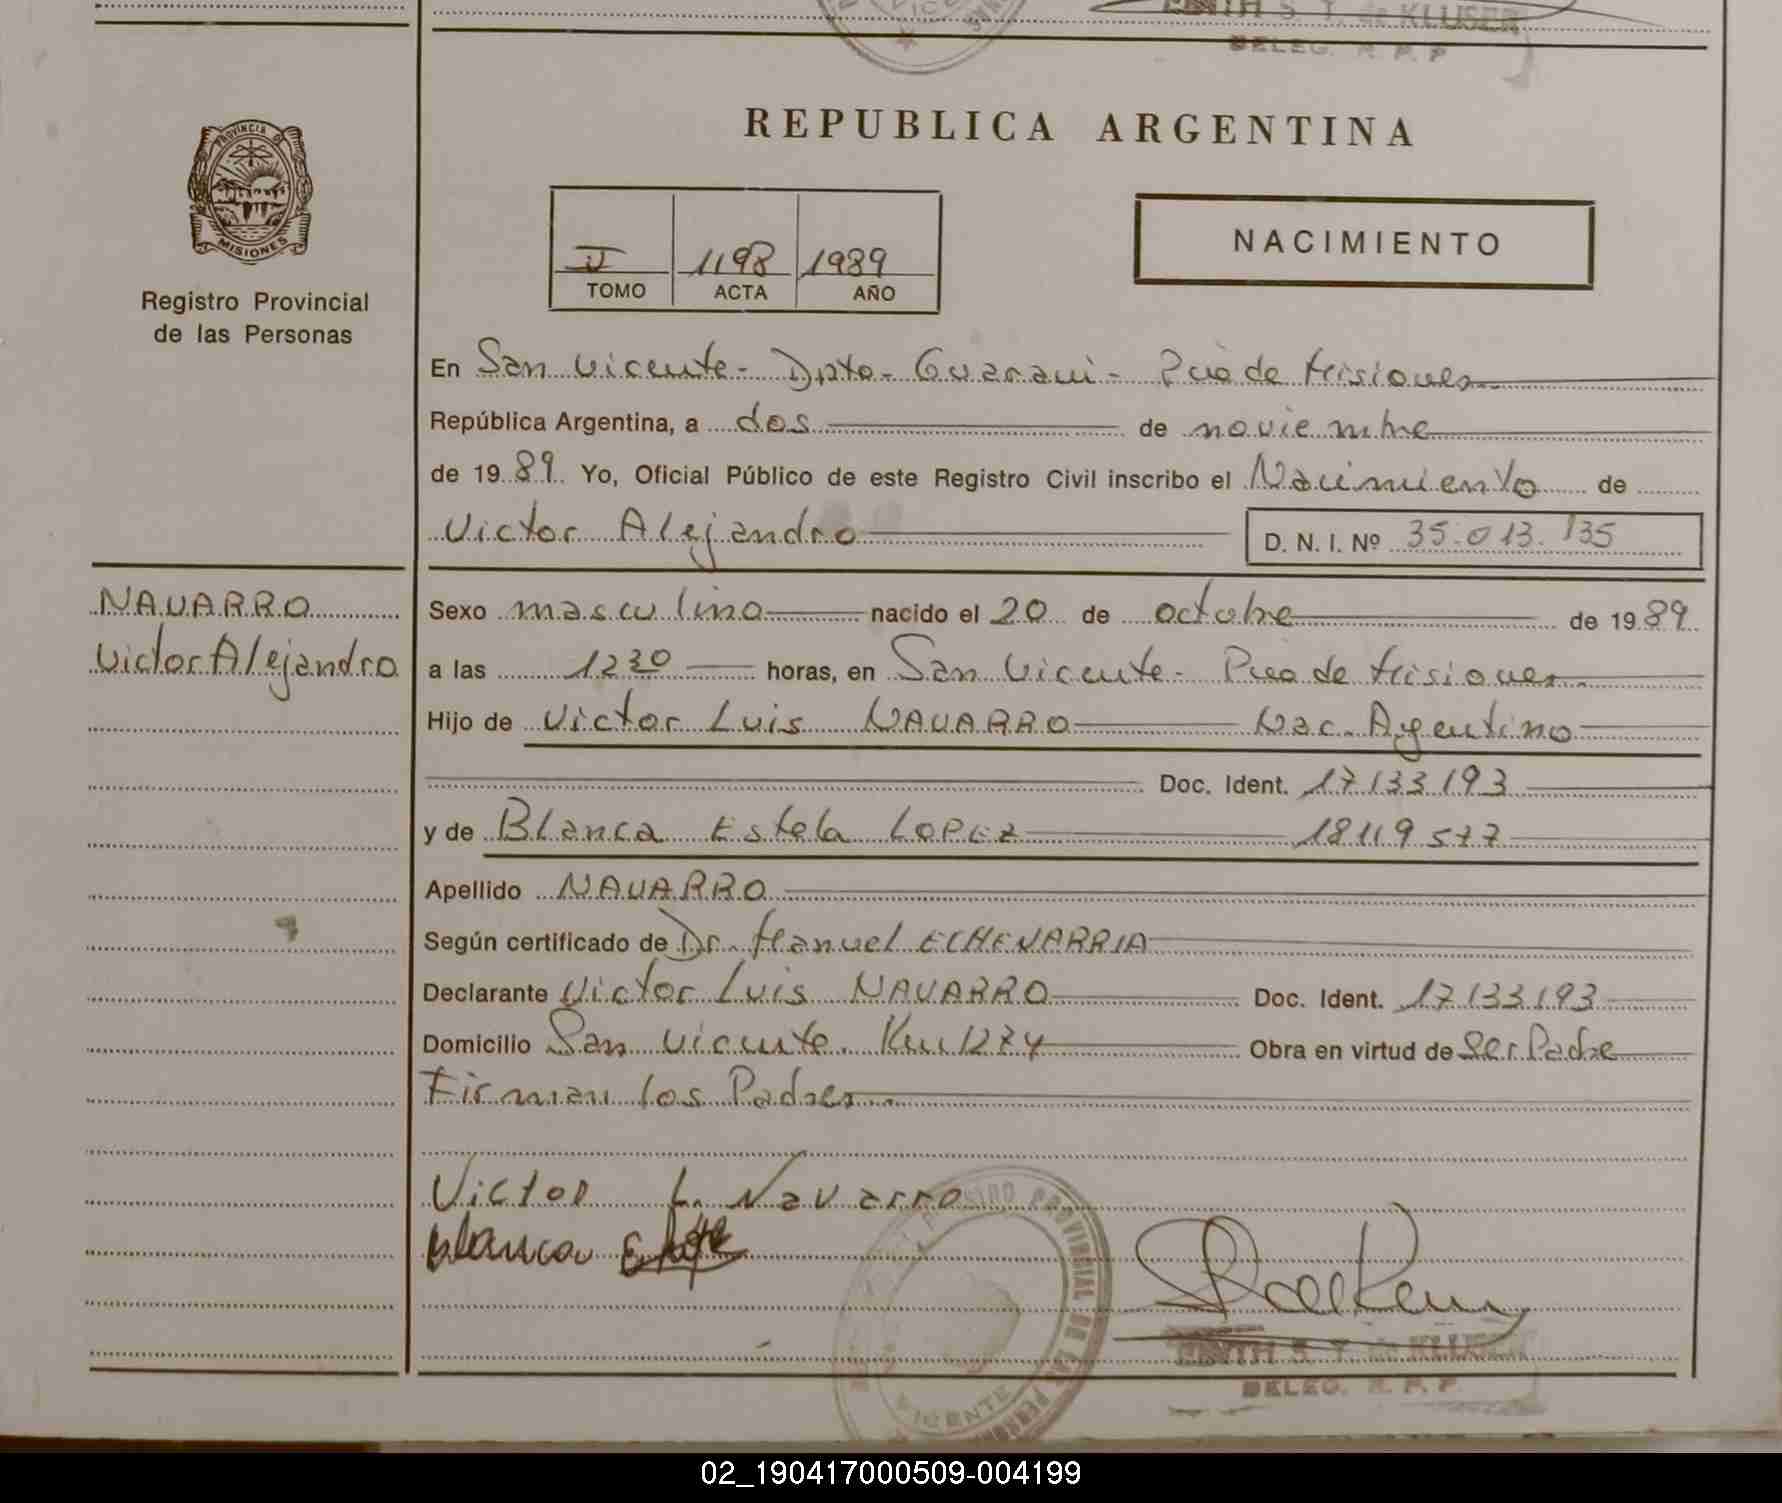 EDITH S. T. de KLUSER
DELEG. R. P. P
PROVINCIA DE
MISIONES
Registro Provincial
de las Personas
REPUBLICA ARGENTINA
II 1198 1989
TOMO ACTA AÑO
NACIMIENTO
En San Vicente - Dpto - Guarani - Pcia de Misiones
República Argentina, a dos de noviembre
de 19 89 Yo, Oficial Público de este Registro Civil inscribo el Nacimiento de
Victor Alejandro D. N. I. Nº 35.013.135
NAVARRO
Victor Alejandro
Sexo masculino nacido el 20 de octubre de 19 89
a las 12 30 horas, en San Vicente - Pcia de Misiones
Hijo de Victor Luis NAVARRO Nac. Argentino
Doc. Ident. 17133193
y de Blanca Estela LOPEZ 18119577
Apellido NAVARRO
Según certificado de Dr. Manuel ECHEVARRIA
Declarante Victor Luis NAVARRO Doc. Ident. 17133193
Domicilio San Vicente. Km 1274 Obra en virtud de Ser Padre
Firman los Padres
Victor L. Navarro
Blanca E
REGISTRO PROVINCIAL DE LAS PERSONAS
VICENTE
EDITH S. T. de KLUSER
DELEG. R. P. P.
02_190417000509-004199